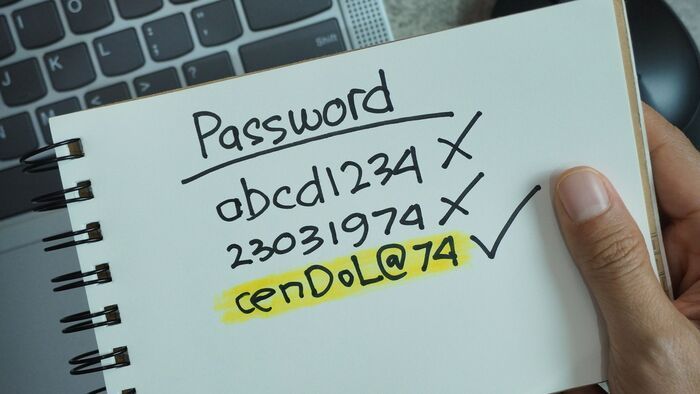 Password
abcd1234 ✗
23031974 ✗
cenDoL@74 ✓
Shift
I
O
P
J
K
L
N
M